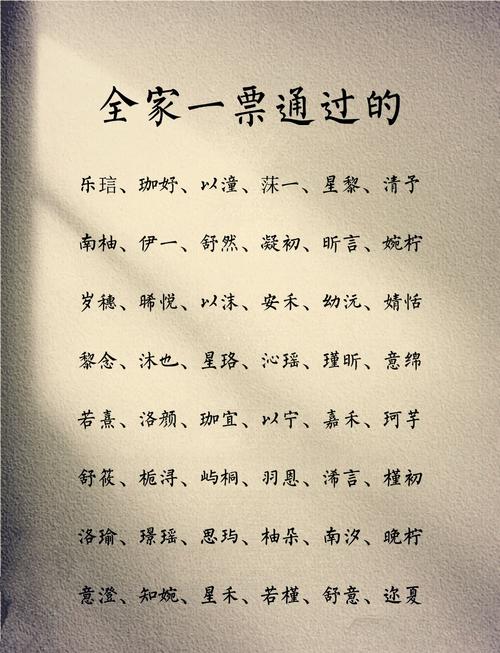 全家一票通过的
乐琂、珈妤、以潼、莯一、星黎、清予
南柚、伊一、舒然、凝初、昕言、婉柠
岁穗、晞悦、以沫、安禾、幼沅、婧恬
黎念、沐也、星珞、沁瑶、瑾昕、意绵
若熹、洛颜、珈宜、以宁、嘉禾、珂芋
舒筱、栀浔、屿桐、羽恩、浠言、槿初
洛瑜、璟瑶、思玙、柚朵、南汐、晚柠
意澄、知婉、星禾、若槿、舒意、迩夏